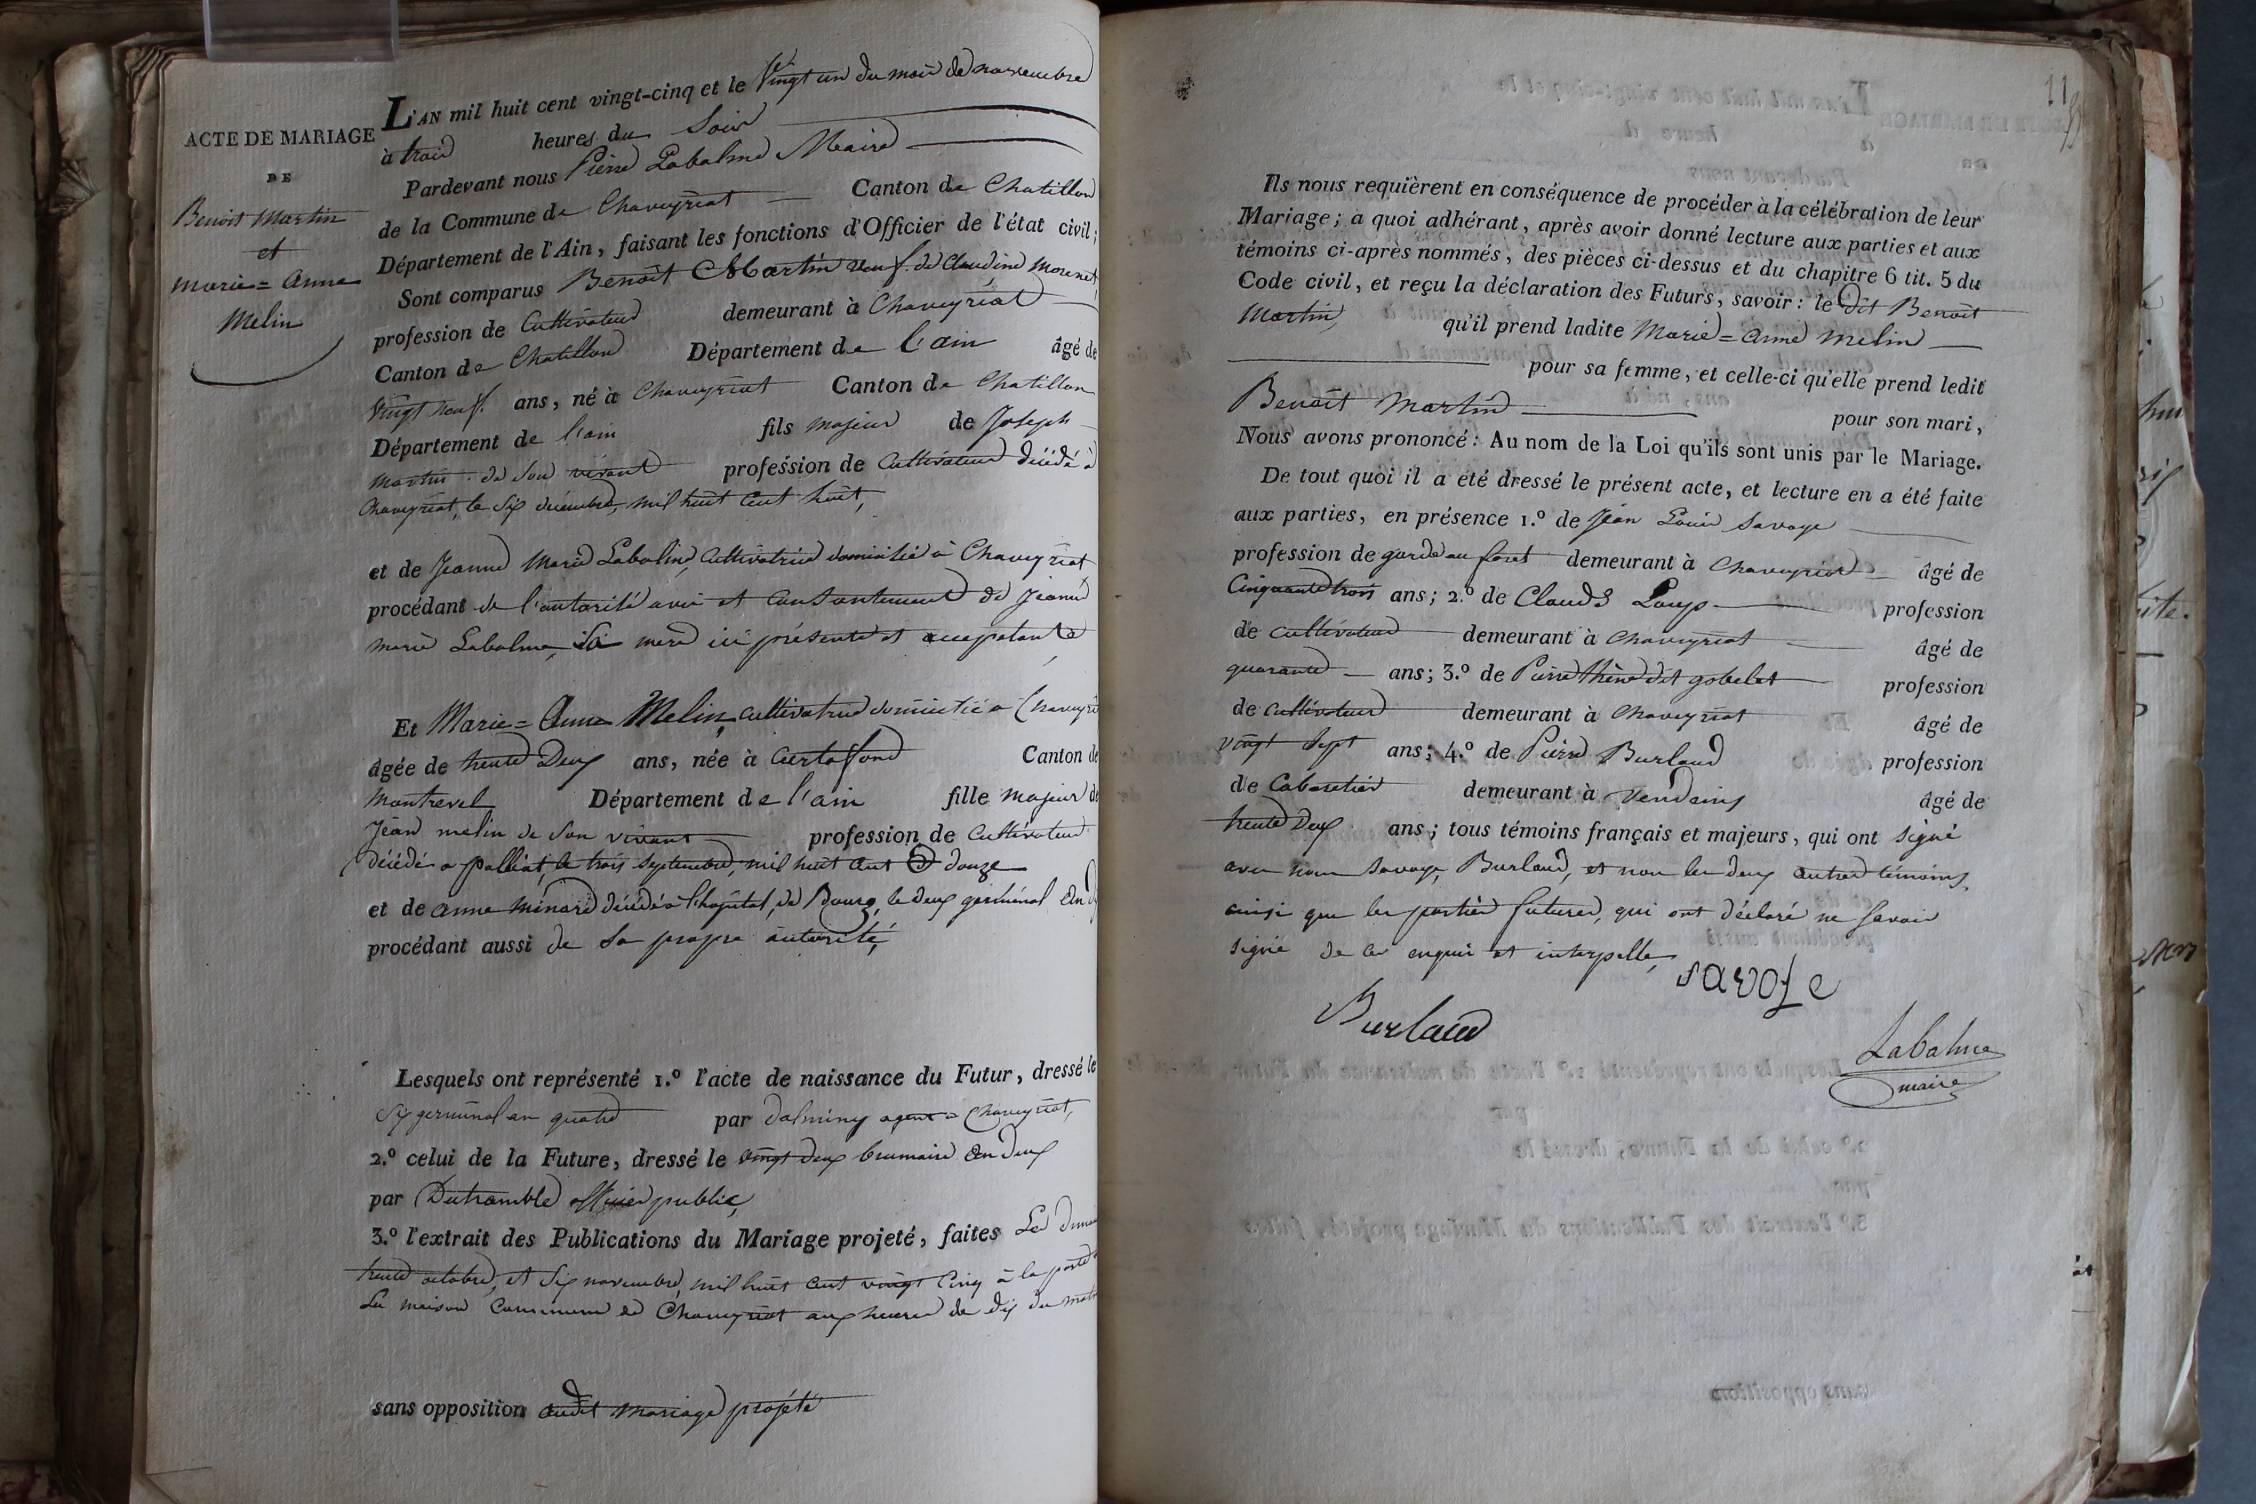 ACTE DE MARIAGE
DE
Benoit Martin
et
Marie = Anne
Melin
L'AN mil huit cent vingt-cinq et le Vingt un du mois de novembre
à trois heures du Soir
Pardevant nous Pierre Labalme Maire
de la Commune de Chaveyriat Canton de Chatillon
Département de l'Ain, faisant les fonctions d'Officier de l'état civil;
Sont comparus Benoit Martin veuf de Claudine Morenet,
profession de Cultivateur demeurant à Chaveyriat
Canton de Chatillon Département de l'ain âgé de
Vingt neuf ans, né à Chaveyriat Canton de Chatillon
Département de l'ain fils majeur de Joseph
martin de son vivant profession de Cultivateur décédé à
Chaveyriat, le Six décembre, mil huit Cent huit,
et de Jeanne Marie Labalme, Cultivatrice domicilié à Chaveyriat
procédant de l'autorité avis et Consentement de Jeanne
marie Labalme, sa mere ici présente et acceptante
Et Marie = Anne Melin, Cultivatrice domicilié à Chaveyri
âgée de trente Deux ans, née à Curtafond Canton de
Montrevel Département de l'ain fille majeur de
Jean melin de Son vivant profession de Cultivateur
décédé a polliat, le trois septembre, mil huit Cent douze
et de anne Minard décédé à l'hopital, de Bourg, le deux germinal an
procédant aussi de Sa propre autorité,
Lesquels ont représenté 1.º l'acte de naissance du Futur, dressé le
Six germinal an quatre par Dalminy agent à Chaveyriat,
2.º celui de la Future, dressé le vingt deux brumaire an deux
par Dutremblé officier public,
3.º l'extrait des Publications du Mariage projeté, faites Les
trente octobre, et Six novembre, mil huit cent vingt Cinq à la porte
La maison Commune de Chaveyriat aux heures de dix du
sans opposition audit mariage projété
11
Ils nous requièrent en conséquence de procéder à la célébration de leur
Mariage; a quoi adhérant, après avoir donné lecture aux parties et aux
témoins ci-après nommés, des pièces ci-dessus et du chapitre 6 tit. 5 du
Code civil, et reçu la déclaration des Futurs, savoir: le dit Benoit
Martin, qu'il prend ladite Marie = anne Melin
pour sa femme, et celle-ci qu'elle prend ledit
Benoit Martin pour son mari,
Nous avons prononcé: Au nom de la Loi qu'ils sont unis par le Mariage.
De tout quoi il a été dressé le présent acte, et lecture en a été faite
aux parties, en présence 1.º de Jean Louis Savoye
profession de garde au foret demeurant à Chaveyriat âgé de
Cinquante trois ans; 2.º de Claude Loup profession
de cultivateur demeurant à Chaveyriat âgé de
quarante ans; 3.º de Pierre thène dit gobelet profession
de cultivateur demeurant à Chaveyriat âgé de
vingt Sept ans; 4.º de Pierre Burlaud profession
de Cabaretier demeurant à Vendeins âgé de
trente Deux ans; tous témoins français et majeurs, qui ont signé
avec nous Savoye, Burlaud, et non les deux autres témoins,
ainsi que les parties futures, qui ont déclaré ne Savoir
signé de ce enquis et interpellé,
savoye
Burlaud
Labalme
maire